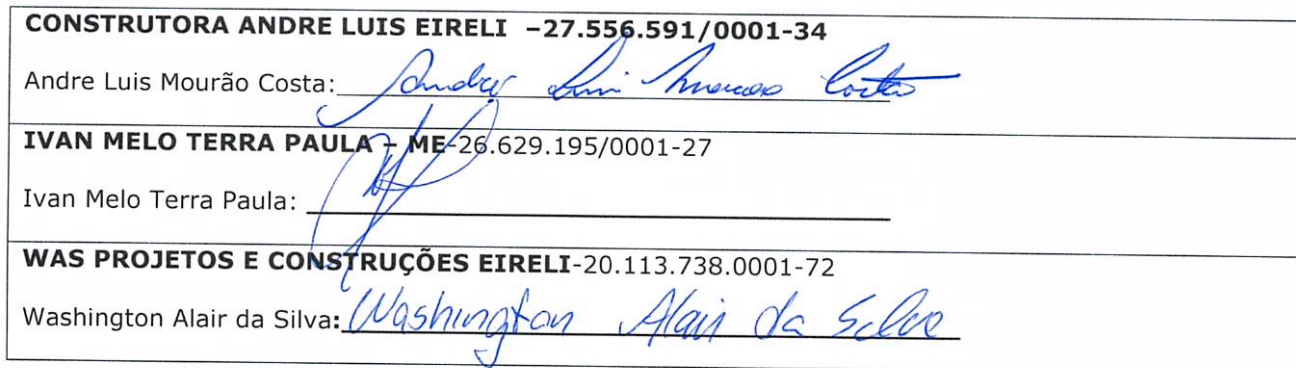 CONSTRUTORA ANDRE LUIS EIRELI –27.556.591/0001-34
Andre Luis Mourão Costa: Andre Luis Mourao Costa
IVAN MELO TERRA PAULA – ME-26.629.195/0001-27
Ivan Melo Terra Paula:
WAS PROJETOS E CONSTRUÇÕES EIRELI-20.113.738.0001-72
Washington Alair da Silva: Washington Alair da Silva